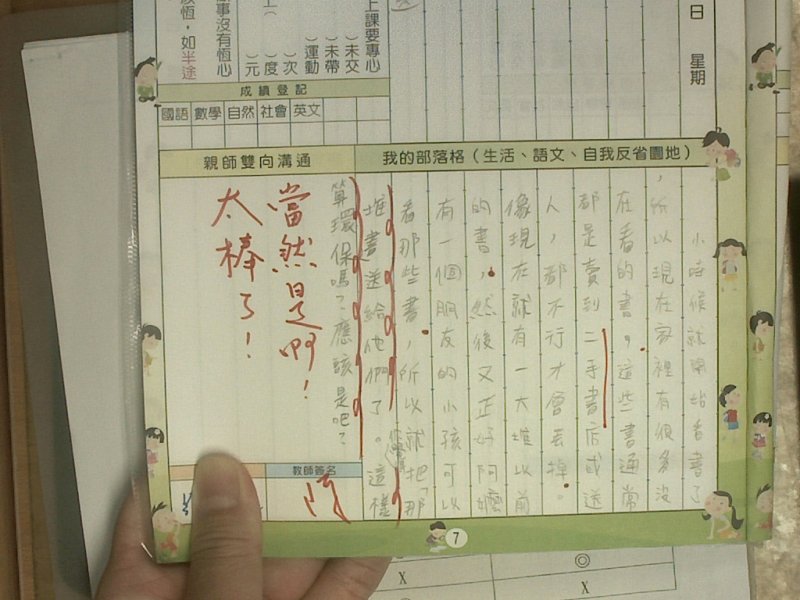 日　星期
上課要專心
（　）未交
（　）未帶
（　）運動
（　）次
（　）度
（　）元
事沒有恆心
恆，如半途
成績登記
國語 數學 自然 社會 英文
我的部落格（生活、語文、自我反省園地）
小時候就開始看書了
，所以現在家裡有很多沒
在看的書，這些書通常
都是賣到二手書店或送
人，都不行才會丟掉。
像現在就有一大堆以前
的書，然後又正好阿嬤
有一個朋友的小孩可以
看那些書，所以就把那
堆書送給他們了。這樣
算環保嗎？應該是吧？
親師雙向溝通
當然是啊！
太棒了！
教師簽名
7
X
◎
X